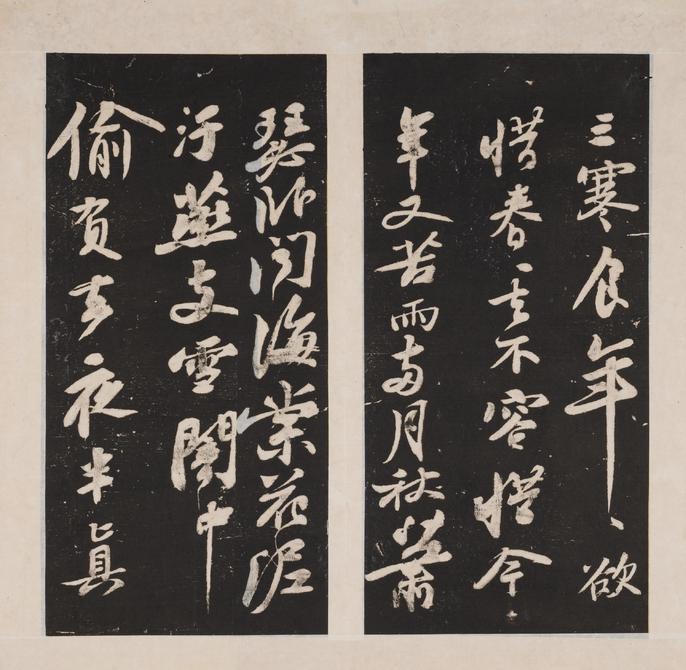 三寒食年〻欲
惜春〻去不容惜今
年又苦雨兩月秋蕭
瑟臥聞海棠花泥
汙燕支雪闇中
偷負去夜半真